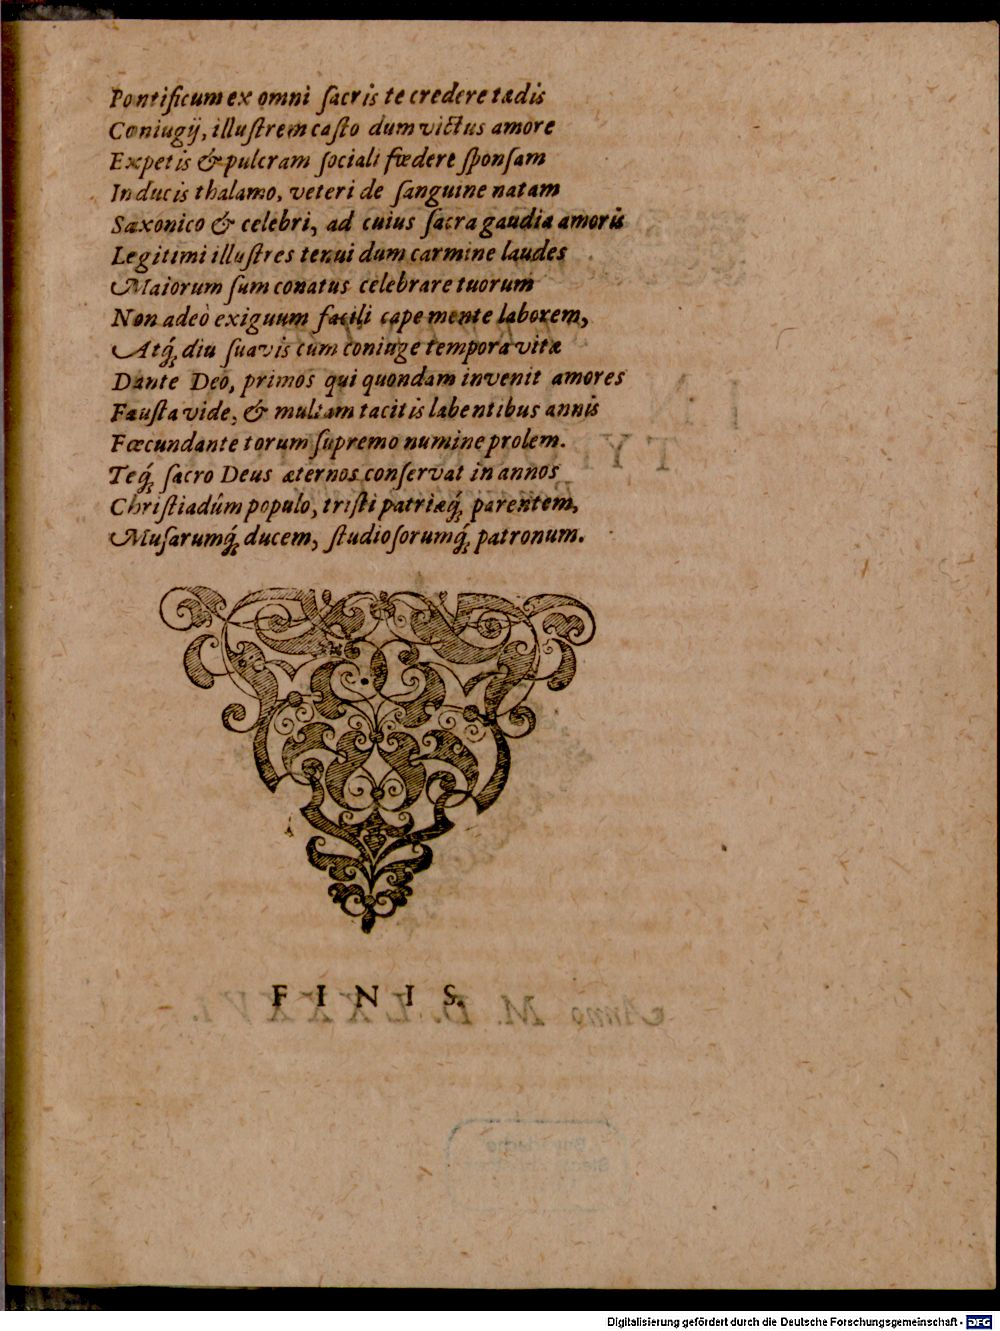 Pontificum ex omni ſacris te credere tædis
Coniugij, illuſtrem caſto dum victus amore
Expetis & pulcram ſociali fœdere ſponſam
Inducis thalamo, veteri de ſanguine natam
Saxonico & celebri, ad cuius ſacra gaudia amoris
Legitimi illuſtres tenui dum carmine laudes
Maiorum ſum conatus celebrare tuorum
Non adeò exiguum facili cape mente laborem,
Atq́; diu ſuavis cum coniuge tempora vitæ
Dante Deo, primos qui quondam invenit amores
Fauſta vide, & multam tacitis labentibus annis
Fœcundante torum ſupremo numine prolem.
Teq́; ſacro Deus æternos conſervat in annos
Chriſtiadûm populo, triſti patriæq́; parentem,
Muſarumq́; ducem, ſtudioſorumq́; patronum.
FINIS.
Anno M. D. LXXXVI.
Digitalisierung gefördert durch die Deutsche Forschungsgemeinschaft - DFG